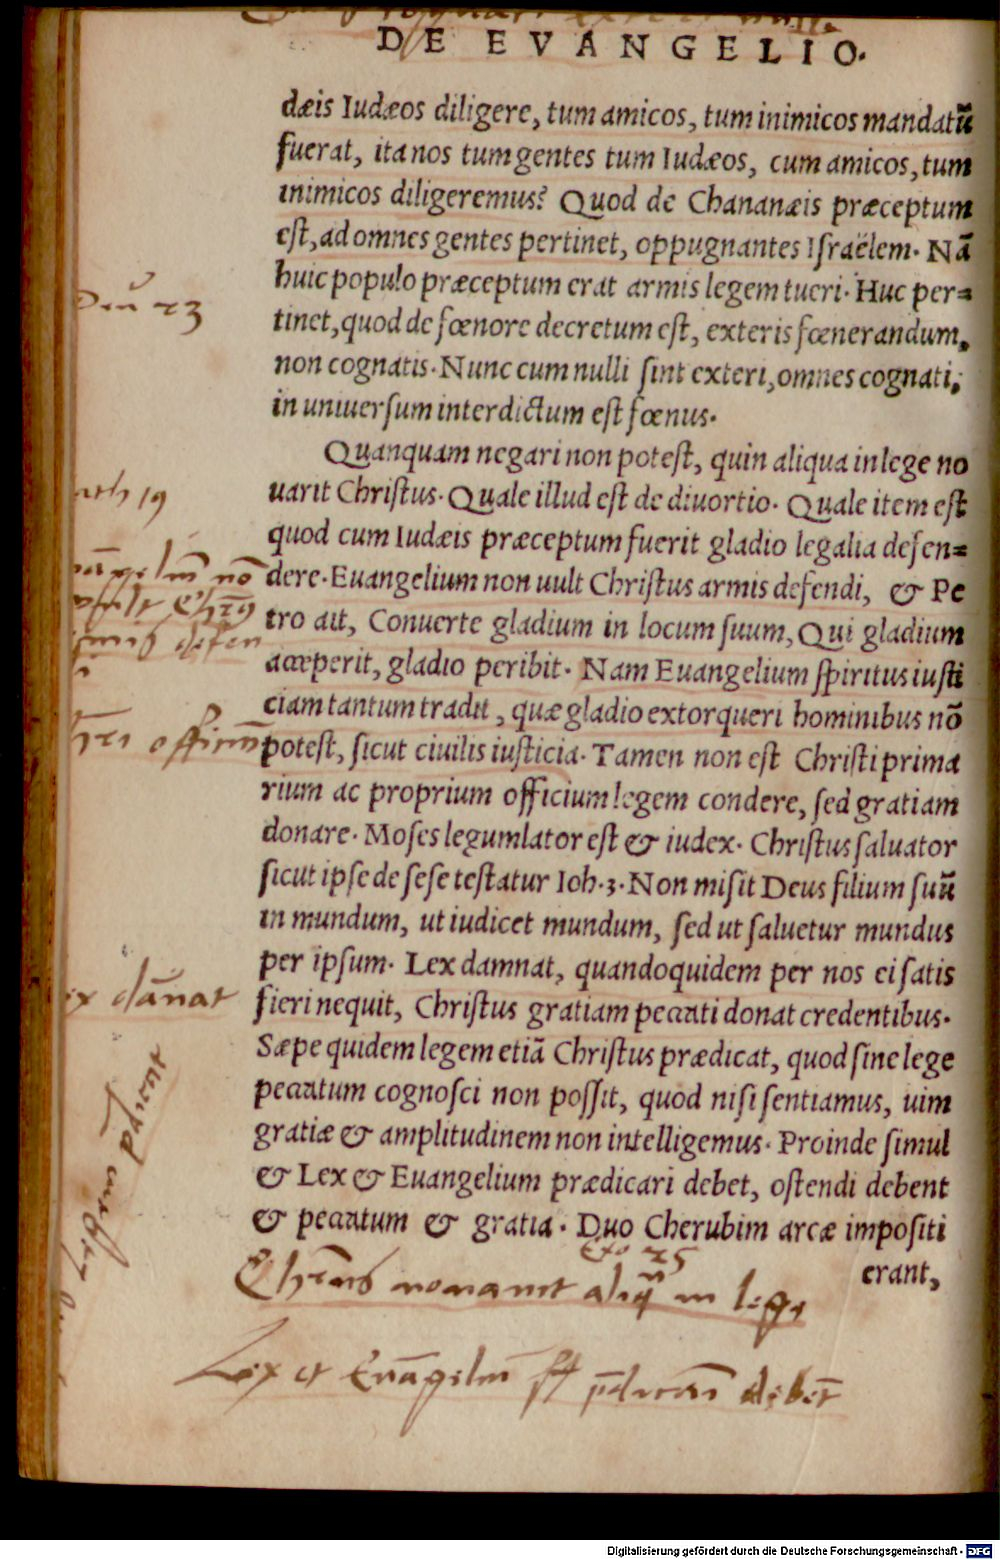 DE EVANGELIO.
dæis Iudæos diligere, tum amicos, tum inimicos mandatū
fuerat, ita nos tum gentes tum Iudæos, cum amicos, tum
inimicos diligeremus? Quod de Chananæis præceptum
est, ad omnes gentes pertinet, oppugnantes Israëlem. Nā
huic populo præceptum erat armis legem tueri. Huc per=
tinet, quod de fœnore decretum est, exteris fœnerandum,
non cognatis. Nunc cum nulli sint exteri, omnes cognati,
in uniuersum interdictum est fœnus.
Quanquam negari non potest, quin aliqua in lege no
uarit Christus. Quale illud est de diuortio. Quale item est
quod cum Iudæis præceptum fuerit gladio legalia defen=
dere. Euangelium non uult Christus armis defendi, & Pe
tro ait, Conuerte gladium in locum suum, Qui gladium
acceperit, gladio peribit. Nam Euangelium spiritus iusti
ciam tantum tradit, quæ gladio extorqueri hominibus nō
potest, sicut ciuilis iusticia. Tamen non est Christi prima
rium ac proprium officium legem condere, sed gratiam
donare. Moses legumlator est & iudex. Christus saluator
sicut ipse de sese testatur Ioh.3. Non misit Deus filium suū
in mundum, ut iudicet mundum, sed ut saluetur mundus
per ipsum. Lex damnat, quandoquidem per nos ei satis
fieri nequit, Christus gratiam peccati donat credentibus.
Sæpe quidem legem etiā Christus prædicat, quod sine lege
peccatum cognosci non possit, quod nisi sentiamus, uim
gratiæ & amplitudinem non intelligemus. Proinde simul
& Lex & Euangelium prædicari debet, ostendi debent
& peccatum & gratia. Duo Cherubim arcæ impositi
erant,
23
19
nō
dānat
Exo 25
in lege
Lex et Euāgeliū debēt
Digitalisierung gefördert durch die Deutsche Forschungsgemeinschaft - DFG